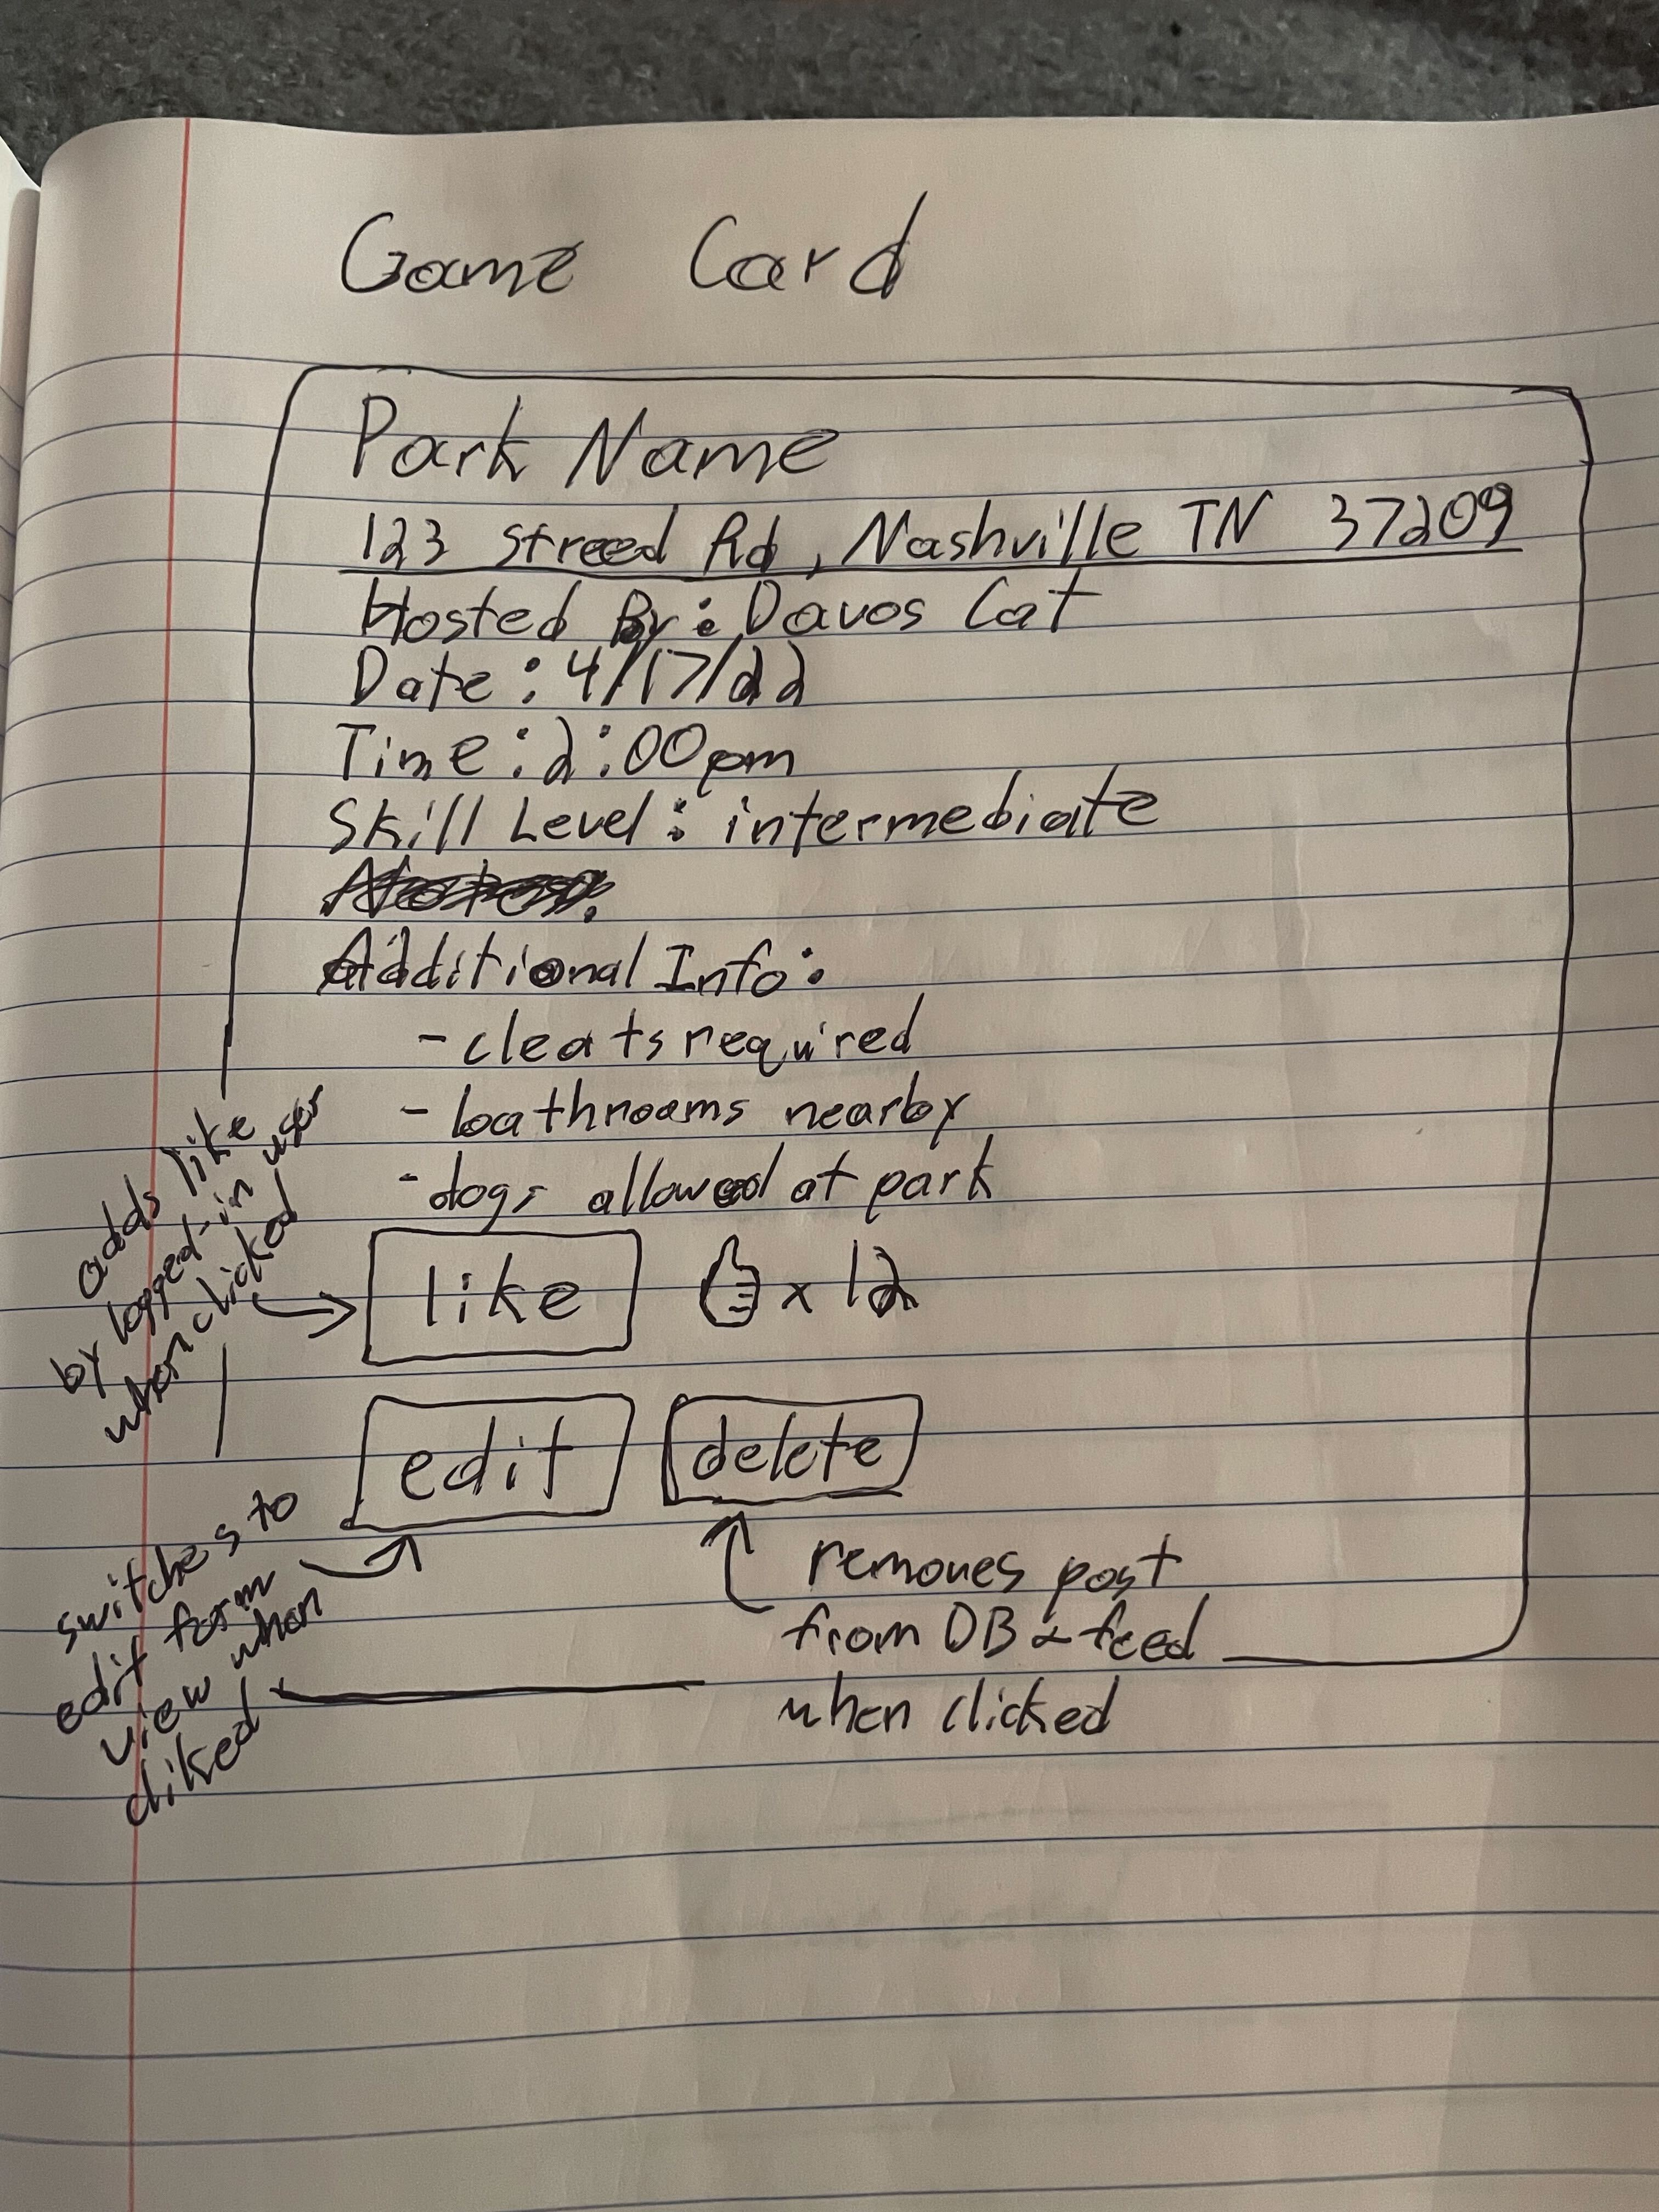 Game Card
Park Name
123 Streed Rd, Nashville TN 37209
Hosted By: Davos Cat
Date: 4/17/22
Time: 2:00pm
Skill Level: intermediate
Additional Info:
- cleats required
- bathrooms nearby
- dogs allowed at park
adds like
by logged-in user
when clicked
like x 12
edit delete
switches to
edit form
view when
cliked
removes post
from DB & feed
when clicked